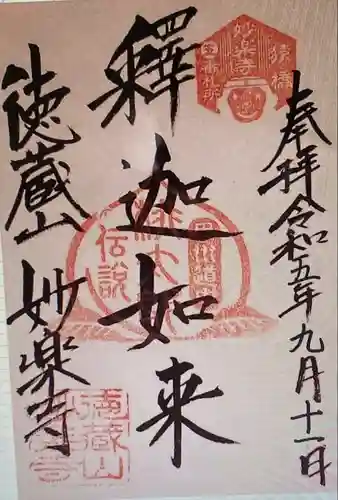 奉拝 令和五年九月十一日
釋迦如来
徳蔵山 妙楽寺
妙楽寺
猿橋
伝説
徳蔵山